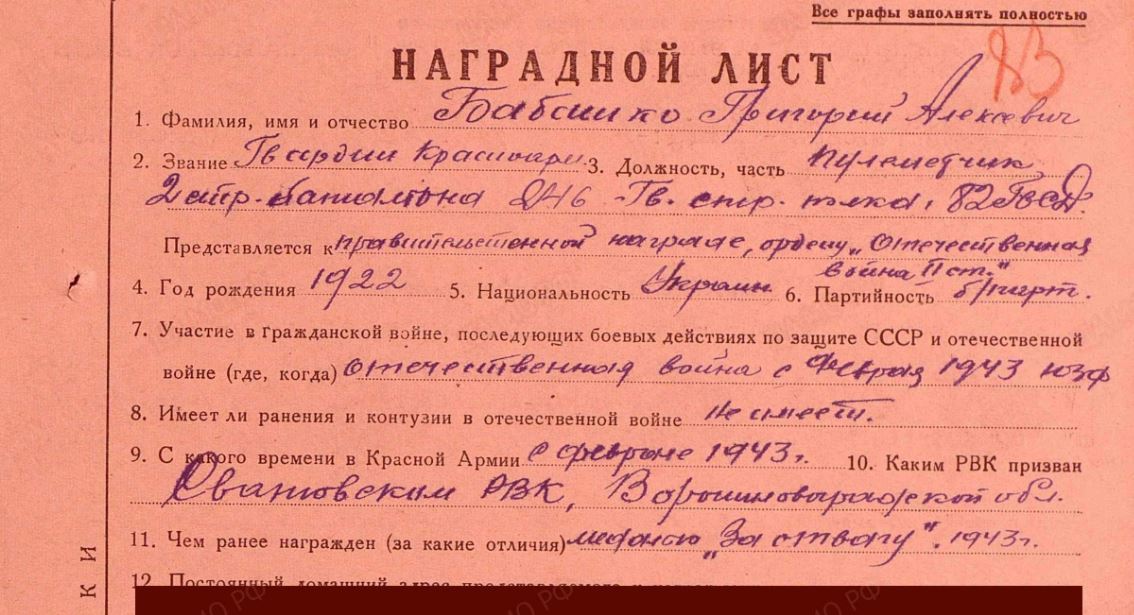 Все графы заполнять полностью
83
НАГРАДНОЙ ЛИСТ
1. Фамилия, имя и отчество Бабашко Григорий Алексеевич
2. Звание Гвардии Красноарм. 3. Должность, часть пулеметчик
2 стр. баталиона 246 Гв. стр. полка, 82 ГвСД.
Представляется к правительственной награде, ордену „Отечественная
война II ст."
4. Год рождения 1922 5. Национальность Украин 6. Партийность б/парт.
7. Участие в гражданской войне, последующих боевых действиях по защите СССР и отечественной
войне (где, когда) Отечественная война с Февраля 1943 ЮЗФ
8. Имеет ли ранения и контузии в отечественной войне Не имеет.
9. С какого времени в Красной Армии с феврале 1943 г. 10. Каким РВК призван
Сватовским РВК, Ворошиловоградской обл.
11. Чем ранее награжден (за какие отличия) медалью „За отвагу". 1943 г.
12 Постоянный домашний адрес представляемого к
К И